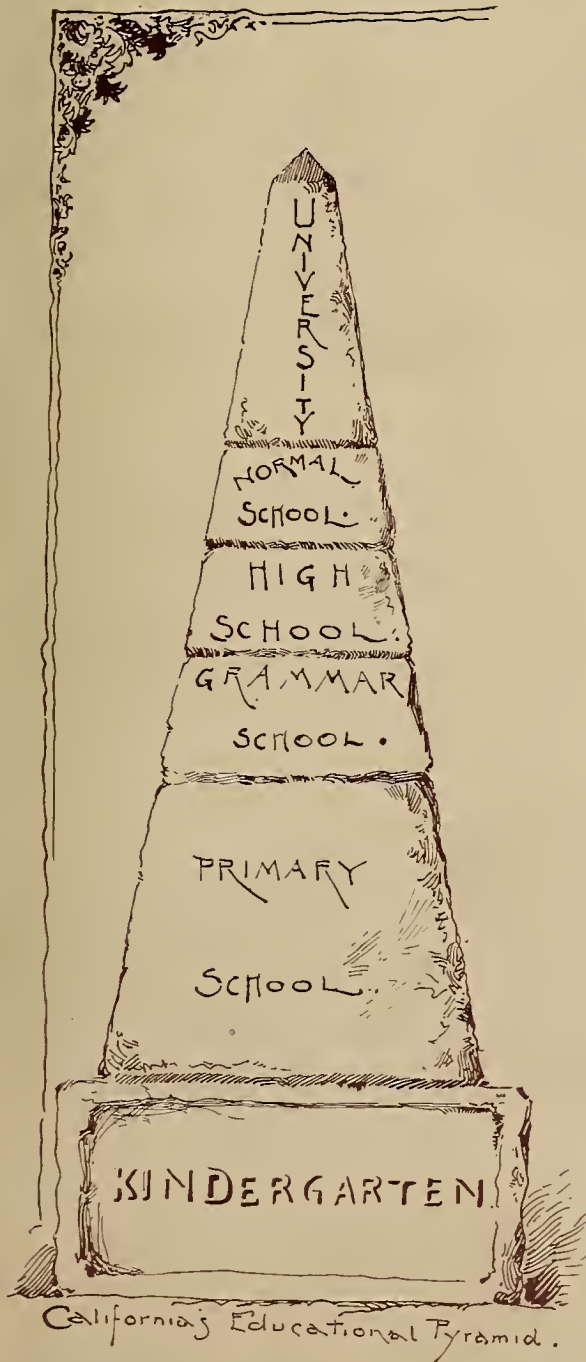 UNIVERSITY
NORMAL
SCHOOL.
HIGH
SCHOOL.
GRAMMAR
SCHOOL.
PRIMARY
SCHOOL.
KINDERGARTEN
California's Educational Pyramid.